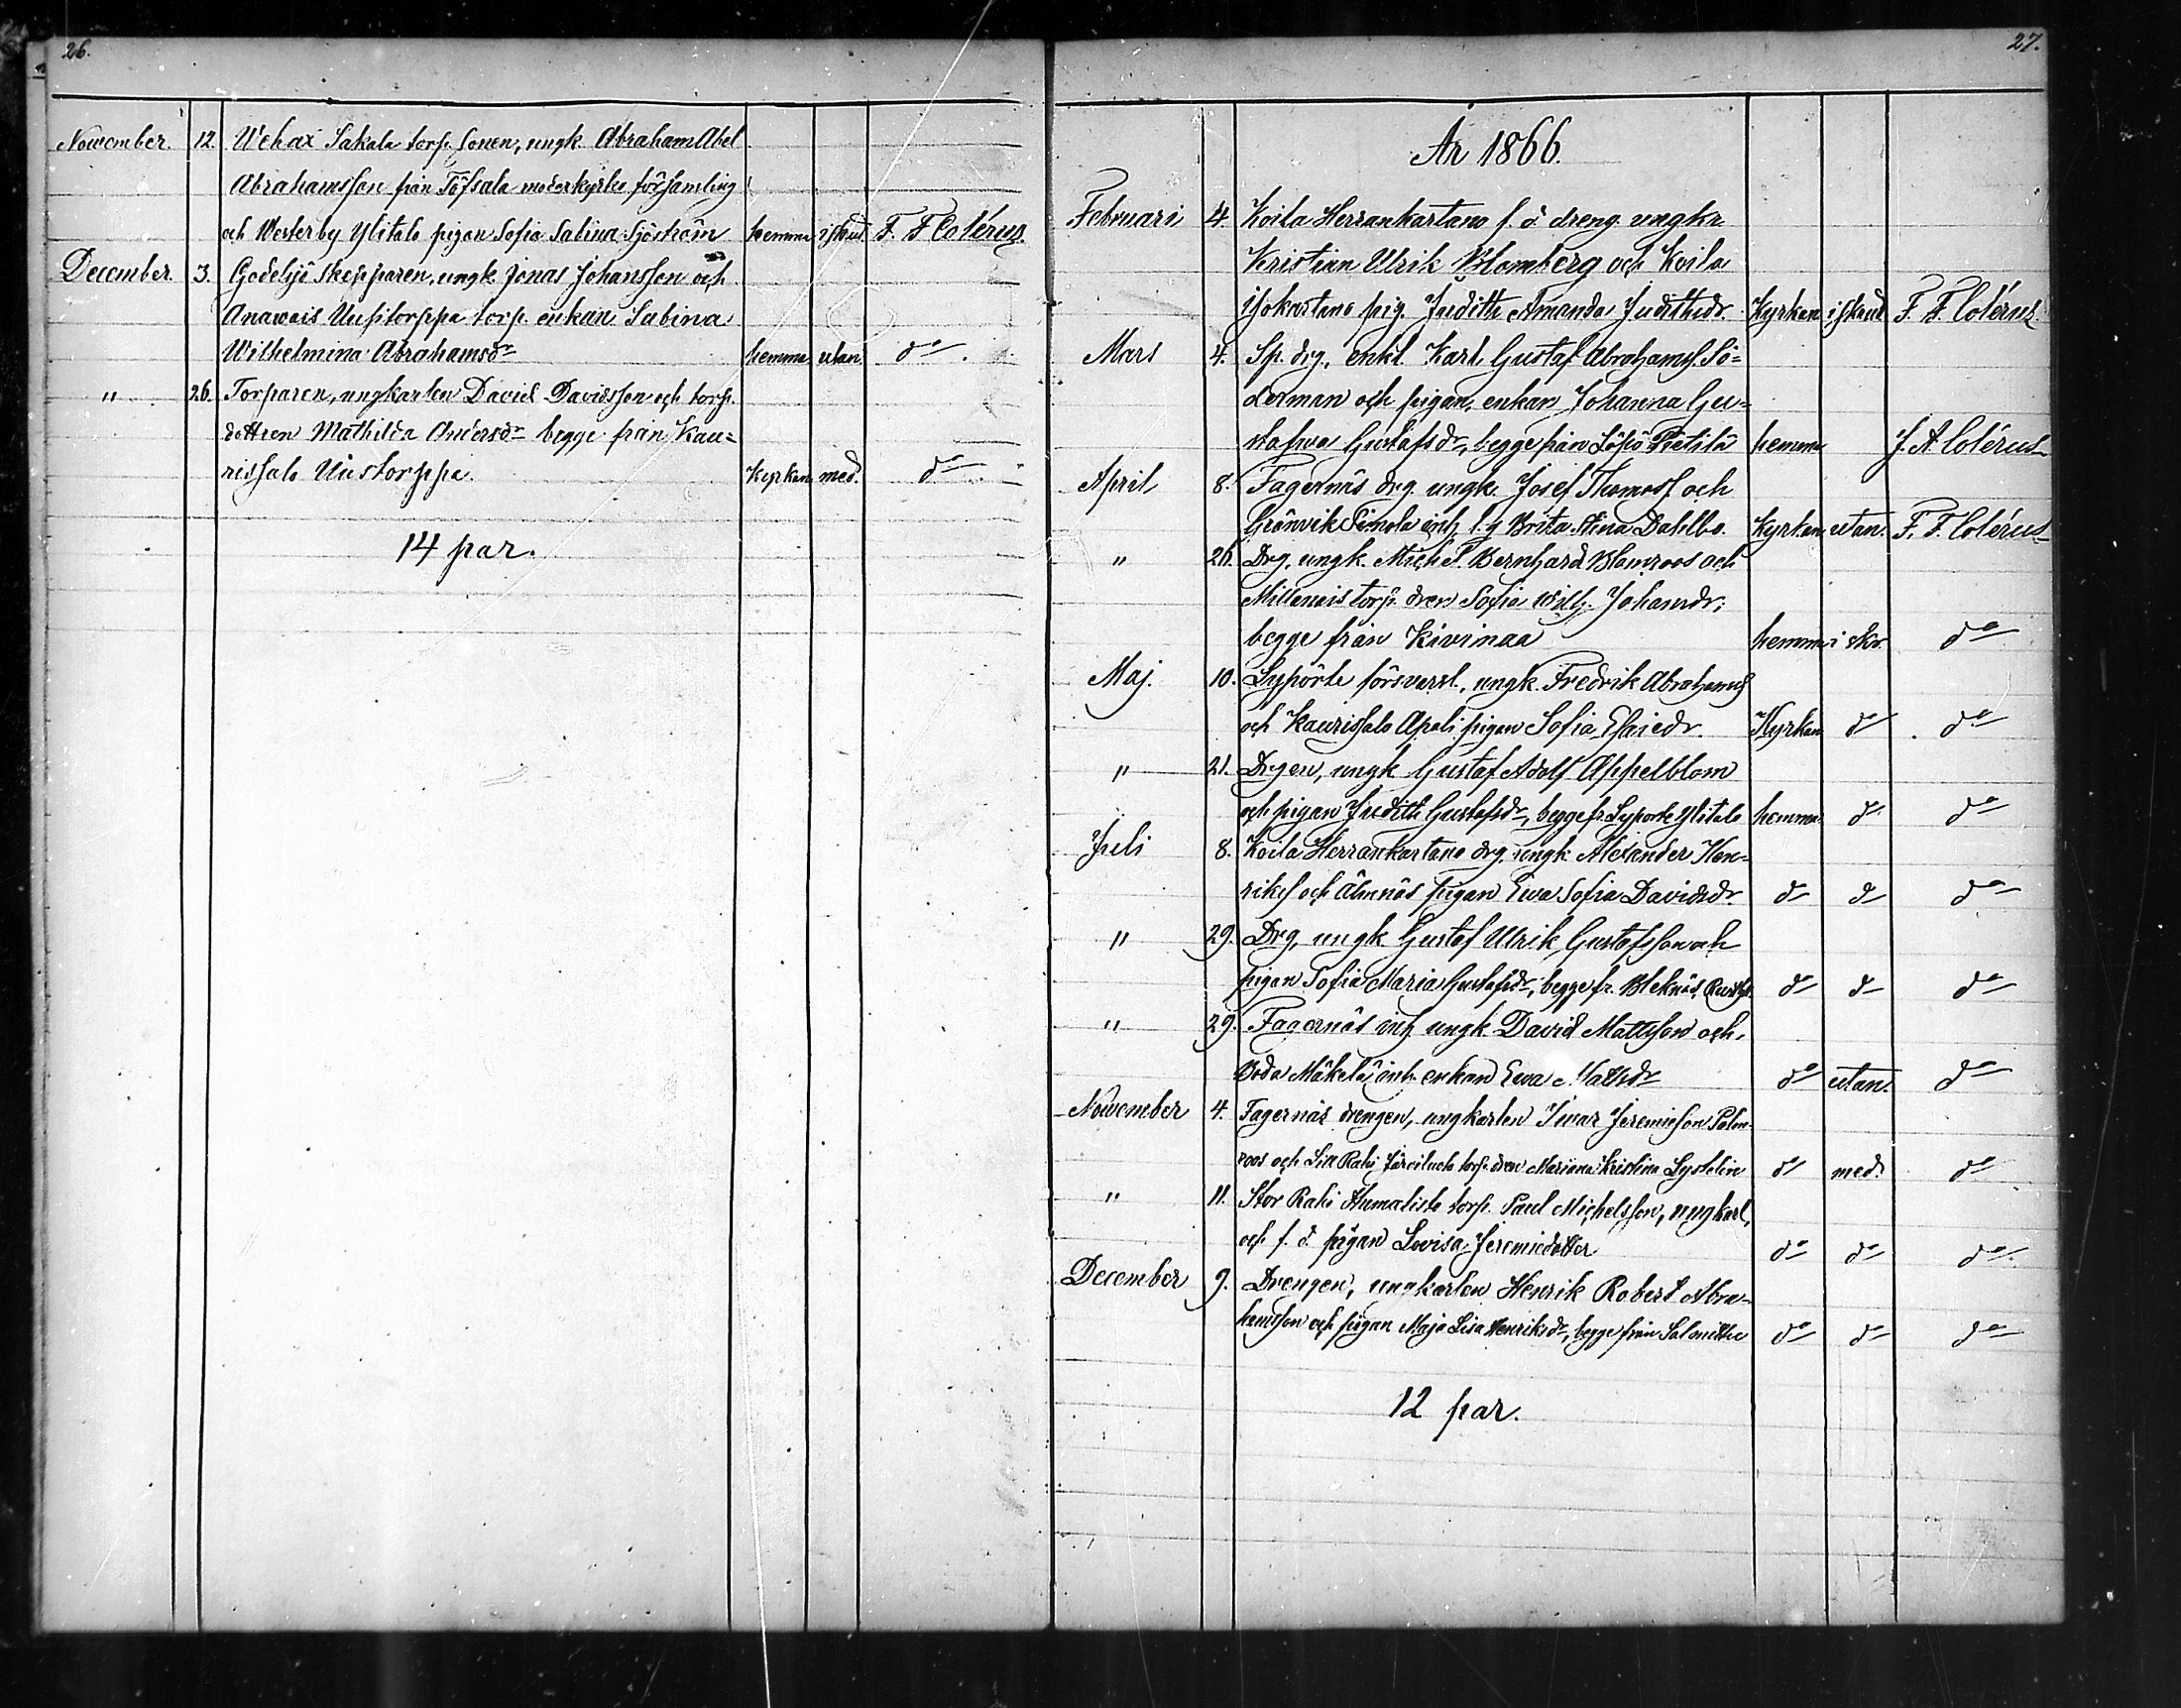 26.
November. 12. Wehax Sakala torp. sonen, ungk. Abraham Abel
Abrahamsson från Töfsala moderkyrko församling
och Westerby Ylitalo pigan Sofia Sabina Sjöström hemma i skrud F. F. Colérus.
December. 3. Godelsjö skepparen, ungk. Jonas Johansson och
Anawais Uusitorppa torp. enkan Sabina
Wilhelmina Abrahamsdr hemma utan do.
" 26. Torparen, ungkarlen David Davidsson och torp.
dottren Mathilda Andersdr begge från Kau=
rissalo Uustorppa. Kyrkan med. do
14 par.
27.
År 1866.
Februari 4. Koila Herrankartano f. d. dreng ungkr
Kristian Ulrik Blomberg och Koila
isokartano pig. Judith Amanda Judithsdr. Kyrkan i skrud F. F. Colérus
Mars 4. Sp. drg. enkl. Karl Gustaf Abrahamss. Sö=
derman och pigan, enkan Johanna Gu=
stafwa Gustafsdr, begge från Löpö Pietilä hemma J. A. Colérus
April 8. Fagernäs drg. ungk. Josef Thomass. och
Grönvik Simola inh. Brita Stina Dahlbo. Kyrkan utan. F. F. Colérus
" 26. Drg. ungk. Mich. Bernhard Blomroos och
torp. dren Sofia Wilh. Johansdr,
begge från Kivimaa hemma i skr. do
Maj. 10. Lypörte försvarsl., ungk. Fredrik Abrahamss
och Kaurissalo Apali pigan Sofia Esaiedr. Kyrkan do do
" 21. Drgen, ungk. Gustaf Adolf Appelblom
och pigan Judith Gustafsdr, begge fr. Lyporte Ylitalo hemma do do
Juli 8. Koila Herrankartano drg. ungk. Alexander Hen=
rikss och pigan Ewa Sofia Davidsdr. do do do
" 29. Drg. ungk Gustaf Ulrik Gustafsson och
pigan Sofia Maria Gustafsdr, begge fr. Bleknäs Rusth. do do do
" 29. Fagernäs inh. ungk. David Mattsson och
Mäkelä, inh. enkan Ewa Mattsdr do utan. do
November 4. Fagernäs drengen, ungkarlen Iwar Jeremiesson Palm
roos och Lill Rahi torp. dren Mariana Kristina Lystelin do med. do
" 11. Stor Rahi Humalisto torp. Paul Michelsson, ungkarl,
och f. d. pigan Lovisa Jeremiedotter do do do.
December 9. Drengen, ungkarlen Henrik Robert Abra=
hamsson och pigan Maja Lisa Henriksdr, begge från Salmittu do do do
12 par.